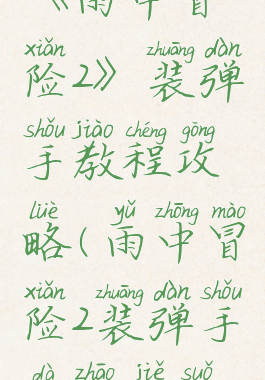 《雨中冒
xiǎn zhuāng dàn
险2》 装弹
shǒu jiào chéng gōng
手教程攻
lüè yǔ zhōng mào
略(雨中冒
xiǎn zhuāng dàn shǒu
险2装弹手
dà zhāo jiě suǒ